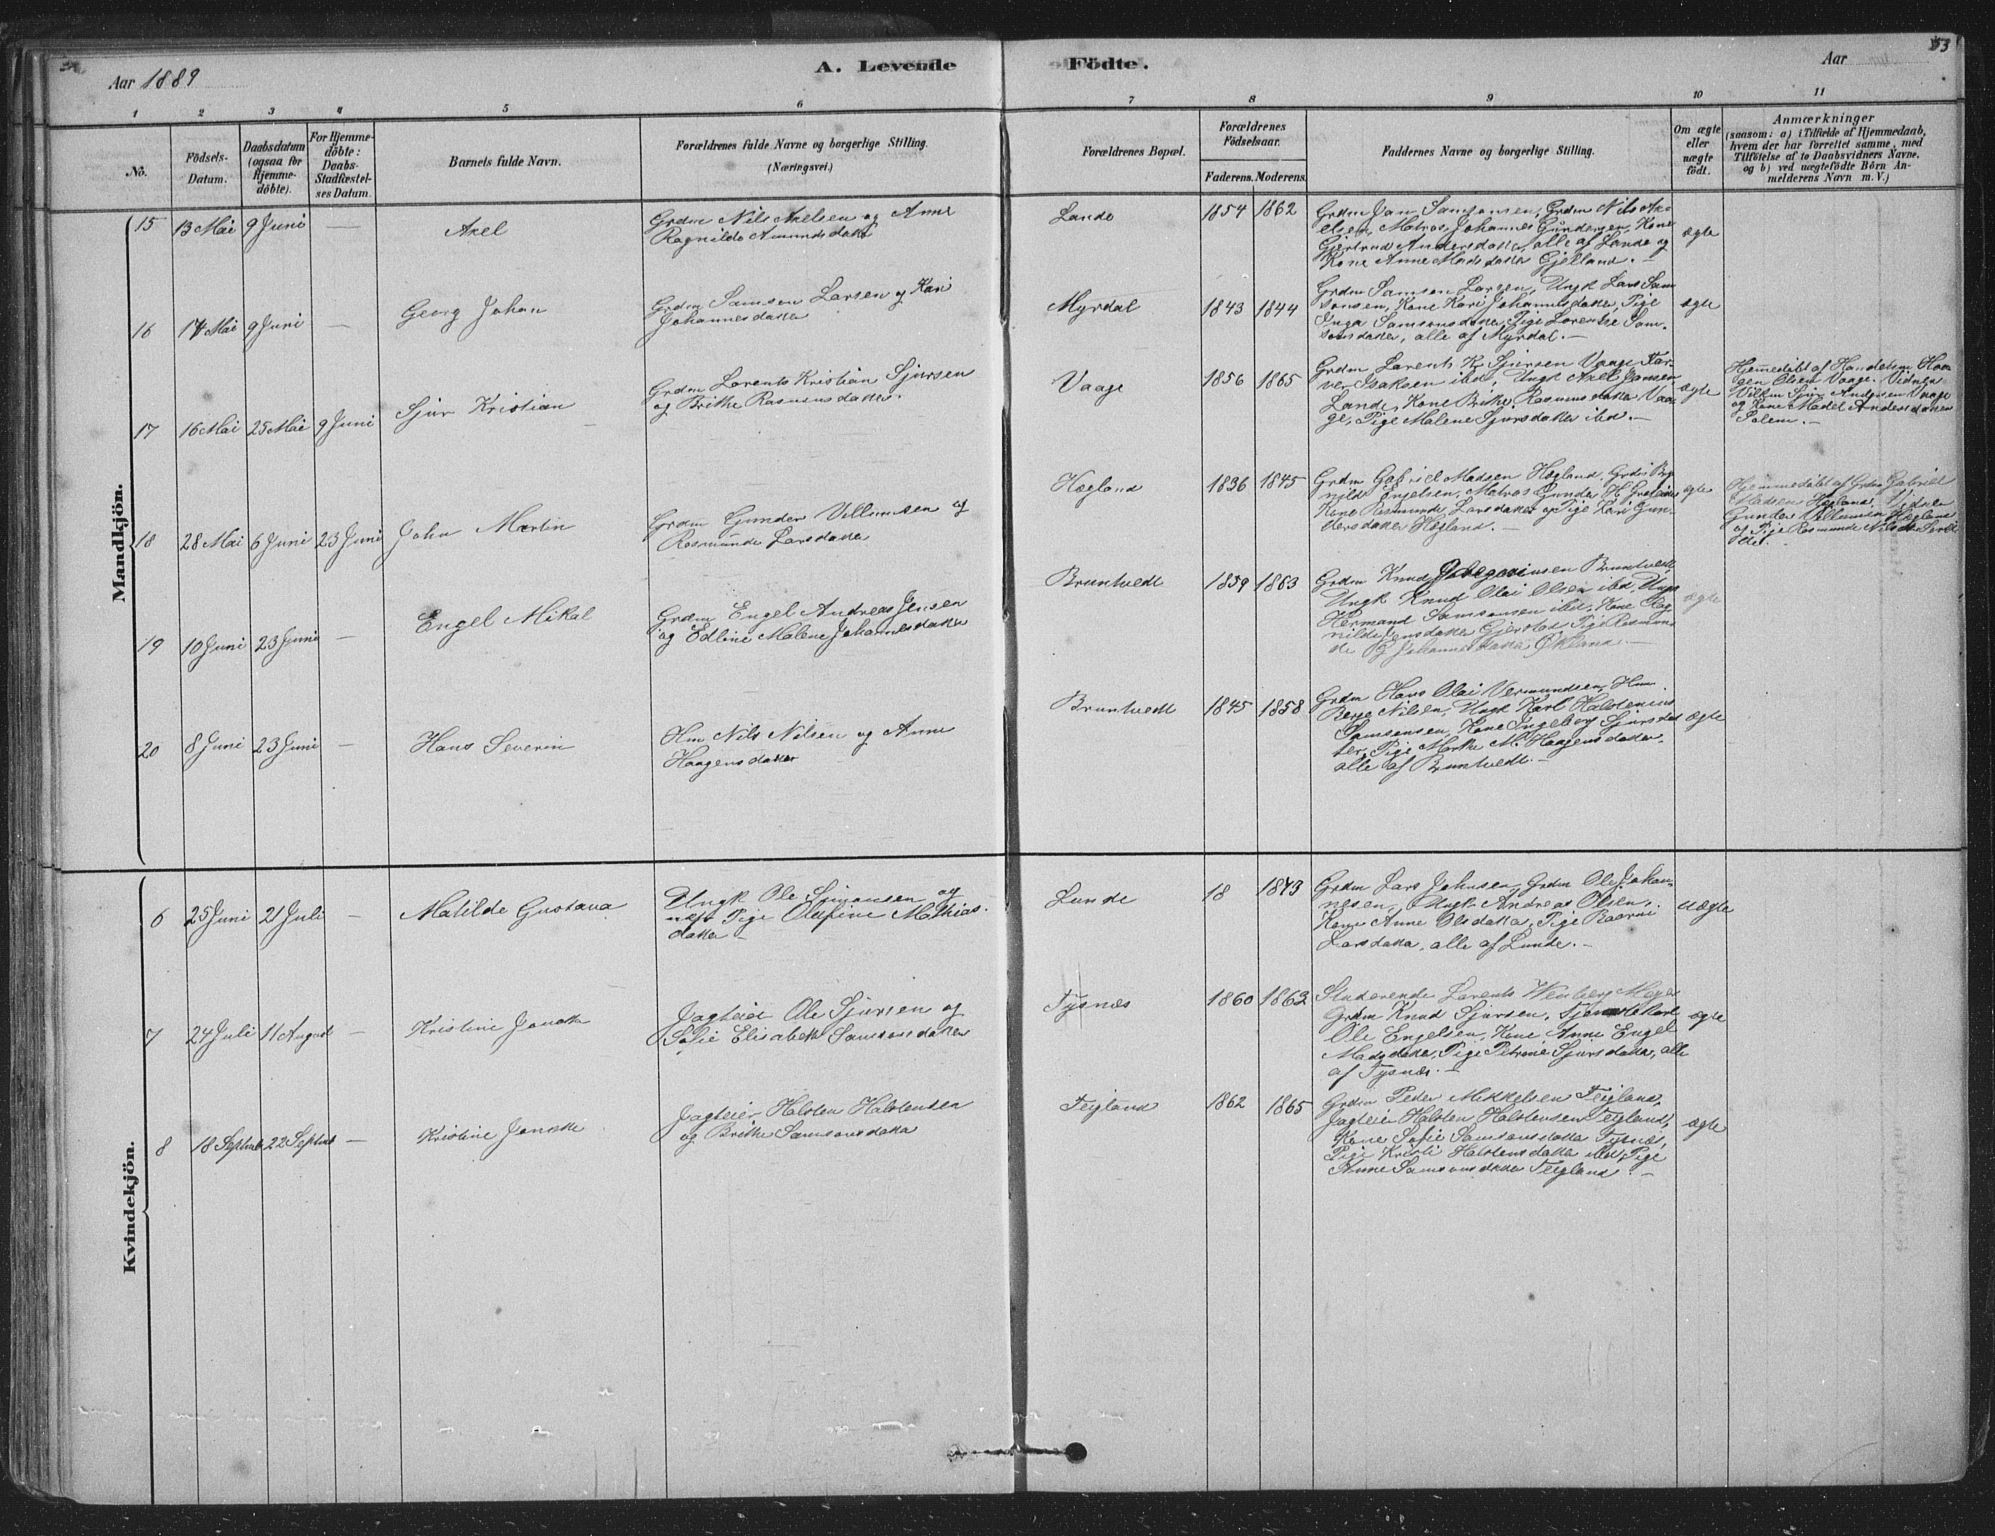 53
Aar 1889
A. Levende
Födte.
Aar
1 2 3 4 5 6 7 8 9 10 11
No.
Födsels-
Datum.
Daabsdatum
(ogsaa for
Hjemme-
döbte).
For Hjemme-
döbte:
Daabs-
Stadfæstel-
ses Datum.
Barnets fulde Navn.
Forældrenes fulde Navne og borgerlige Stilling.
(Næringsvei.)
Forældrenes Bopæl.
Forældrenes
Födselsaar.
Faderens. Moderens.
Faddernes Navne og borgerlige Stilling.
Om ægte
eller
uægte
födt.
Anmærkninger
(saasom: a) i Tilfælde af Hjemmedaab,
hvem der har forrettet samme, med
Tilföielse af to Daabsvidners Navne,
og b) ved uægtefödte Börn An-
melderens Navn m. V.)
Mandkjön.
15 13 Mai 9 Juni —
Axel
Grdm Nils Axelsen og Anne
Ragnilde Amundsdatter
Lande
1854 1862
Grdm Jan Samsonsen, Grdm Nils Ax-
elsen, Matros Johannes Gundersen, Kone
Gjertrud Andersdatter, alle af Lande og
Kone Anne Madsdatter Gjelland. —
ægte
16 14 Mai 9 Juni —
Georg Johan
Grdm Samson Larsen og Kari
Johannesdatter
Myrdal
1843 1844
Grdm Samson Larsen, Ungk Lars Sam-
sonsen, Kone Kari Johannesdatter, Pige
Inga Samsonsdatter, Pige Lorentse Sam-
sonsdatter, alle af Myrdal. —
ægte
17 16 Mai 25 Mai 9 Juni
Sjur Kristian
Grdm Lorents Kristian Sjursen
og Brithe Rasmusdatter.
Vaage
1856 1865
Grdm Lorents Kr Sjursen Vaage, Far-
ver Isaksen ibd, Ungk Axel Jansen
Lande, Kone Brithe Rasmusdatter Vaa-
ge, Pige Malene Sjursdatter ibd. —
ægte
Hjemmedöbt af Handelsm Haa-
gen Olsen Vaage. Vidner
Sjur Andersen Vaage
og Kone Madel Andersdatter
Solem. —
18 28 Mai 6 Juni 23 Juni
John Martin
Grdm Gunder Villumsen og
Rosmunde Larsdatter
Hægland
1836 1845
Grdm Gabriel Madsen Hægland, Grdm
Engelsen, Matros Gunder H
Kone Rasmunde Larsdatter og Pige Kari Gun-
dersdatter Hægland. —
ægte
Hjemmedöbt af Grdm Gabriel
Madsen Hægland. Vidner
Gunder Villumsen Hægland
og Pige Rosmunde Nilsdatter
19 10 Juni 23 Juni —
Engel Mikal
Grdm Engel Andreas Jensen
og Edline Malene Johannesdatter
Bruntvedt
1859 1863
Grdm Knud Bruntvedt,
Ungk Knud Olai Olsen ibd, Ungk
Hermand Samsonsen ibd, Kone Rag-
nilde Jensdatter Gjerstad, Pige Rosmun-
de J Johannesdatter Økland. —
ægte
20 8 Juni 23 Juni —
Hans Severin
Hm Nils Nilsen og Anne
Haagensdatter
Bruntvedt
1845 1858
Grdm Hans Olai Vermundsen, Hm
Berge Nilsen, Ungk Karl Halstenius
Samsonsen, Kone Ingeborg Sjursdat-
ter, Pige Marthe M. Haagensdatter,
alle af Bruntvedt. —
ægte
Kvindekjön.
6 25 Juni 21 Juli —
Matilde Gustava
Ungk Ole Simonsen og
Pige Olufine Mathias-
datter —
Lunde
18 1843
Grdm Lars Johnsen, Grdm Ole Johan-
nesen, Ungk Andreas Olsen,
Kone Anne Olsdatter, Pige
Larsdatter, alle af Lunde. —
uægte
7 24 Juli 11 August —
Kristine Janette
Jagteier Ole Sjursen og
Sofie Elisabeth Samsonsdatter
Tysnæs
1860 1863
Studerende Lorents Weinberg Meyer
Grdm Knud Sjursen, Tjenestekarl
Ole Engelsen, Kone Anne Engel
Madsdatter, Pige Petrine Sjursdatter, alle
af Tysnæs. —
ægte
8 18 Septemb 22 Septemb —
Kristine Janette
Jagteier Halsten Halstensen
og Brithe Samsonsdatter
Teigland
1862 1865
Grdm Peder Mikkelsen Teigland,
Jagteier Halsten Halstensen Teigland,
Kone Sofie Samsonsdatter Tysnæs,
Pige Kristi Halstensdatter ibd, Pige
Anne Samsonsdatter Teigland. —
ægte